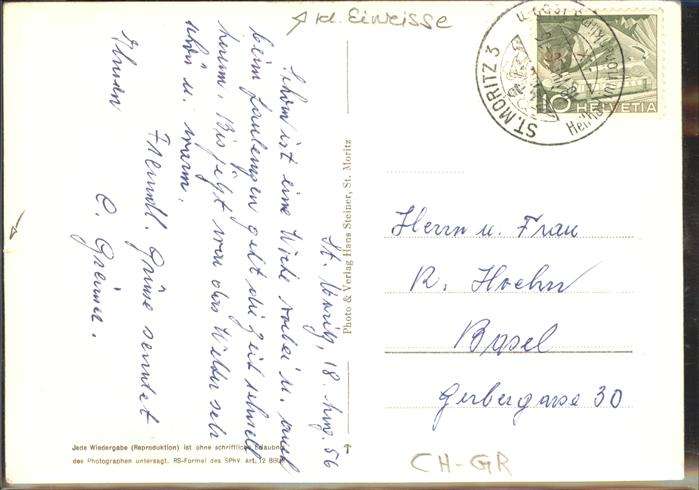 kl. Eiweisse
St. Moritz, 18. Aug. 56
Schon ist eine Woche vorbei u. auch
beim faulenzen geht die Zeit schnell
herum. Bis jetzt war das Wetter sehr
schön u. warm.
Freundl. Grüsse sendet
Ihnen
C. Greiner.
Photo & Verlag Hans Steiner, St. Moritz
ST. MORITZ 3
HELVETIA
10
Herrn u. Frau
R. Hoehn
Basel
Gerbergasse 30
CH-GR
Jede Wiedergabe (Reproduktion) ist ohne schriftliche Erlaubnis
des Photographen untersagt. RS-Formel des SPhV art. 12 BBG